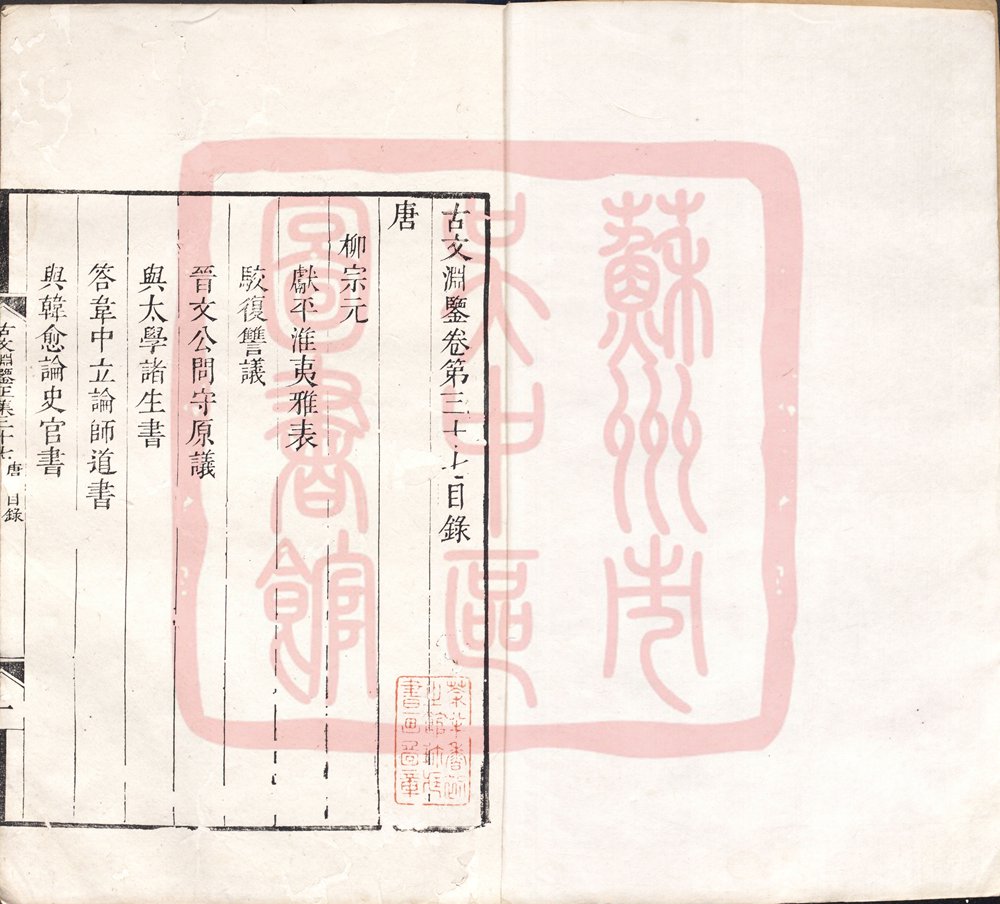 古文淵鑒卷第三十七目錄
唐
柳宗元
獻平淮夷雅表
駁復讐議
晉文公問守原議
與太學諸生書
答韋中立論師道書
與韓愈論史官書
古文淵鑒正集三十七 唐 目錄
一
蘇州市
吳中區
圖書館
書畫圖章